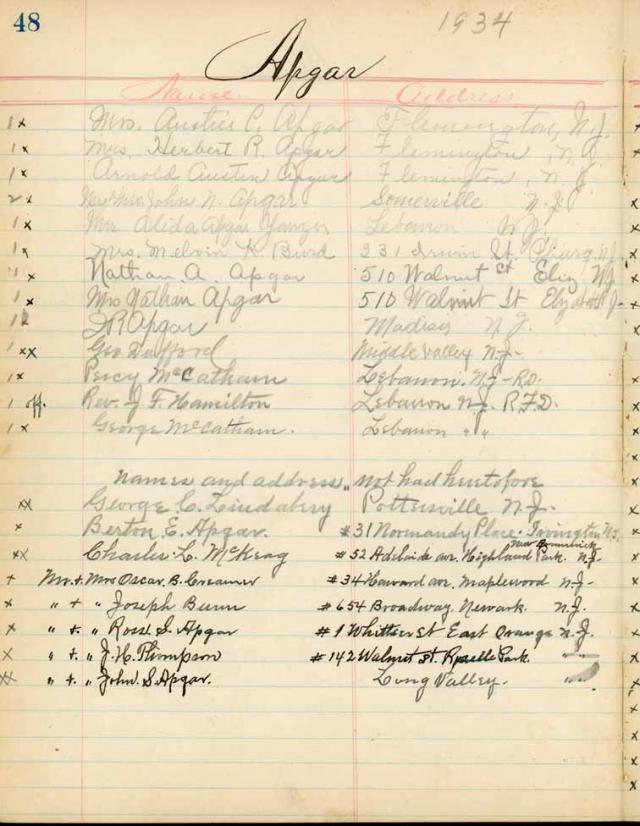 48
1934
Apgar
Name Address
1 x Mrs. Austin C. Apgar Flemington, N.J.
1 x Mrs. Herbert R. Apgar Flemington, N.J.
1 x Arnold Austin Apgar Flemington, N.J.
2 x Mr & Mrs. John N. Apgar Somerville N.J.
1 x Alida Apgar Lebanon N.J.
1 x Mrs. Melvin K Burd 231 Irwin St.
1 x Nathan. A. Apgar 510 Walnut St Eliz NJ
1 x Mrs Nathan Apgar 510 Walnut St Elizabeth
1 Apgar Madison N.J.
1 xx Geo Dufford Middle Valley N.J-
1 x Percy McCatharn Lebanon. N.J-R.D.
1 Rev. J. F. Hamilton Lebanon N.J. R.F.D.
1 x George McCatharn. Lebanon " "
names and address, not had heretofore
xx George C. Lindabery Pottersville N.J-
x Berton E. Apgar. #31 Normandy Place. Irvington N.J.
New Brunswick
xx Charles L. McKeag #52 Adelaide ave. Highland Park. N.J-
+ Mr. + Mrs Oscar. B. Creamer #34 Howard ave. Maplewood N.J-
x " +. " Joseph Bunn #654 Broadway. Newark. N.J.
x " +. " Ross. S. Apgar #1 Whittier St East Orange N.J.
x " +. " J. H. Thompson #142 Walnut St. Roselle Park.
xx " +. " John. S. Apgar. Long Valley. " "